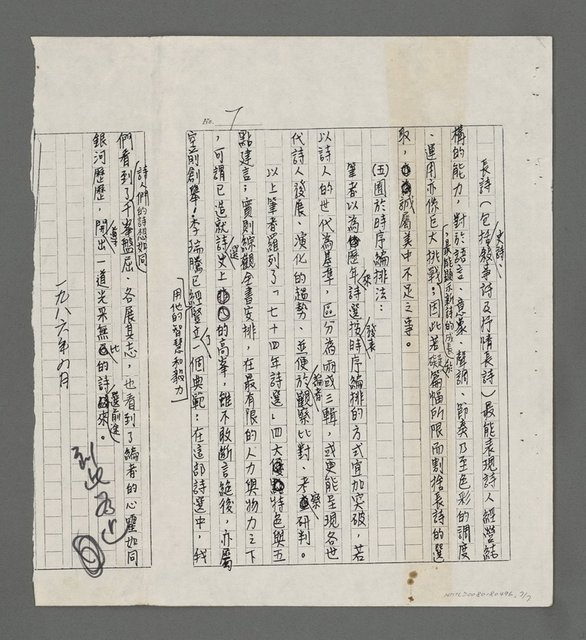 No. 7
長詩（包括史詩、敘事詩及抒情長詩）最能表現詩人經營結
構的能力，對於語言、意象、聲調、節奏乃至色彩的調度
、運用亦係巨大挑戰，因此若礙篇幅所限而割捨長詩的選
取，誠屬美中不足之事。
(五)囿於時序編排法：
筆者以為歷年詩選按發表時序編排的方式宜加突破，若
以詩人的世代為基準，區分為兩或三輯，或更能呈現各世
代詩人發展、演化的趨勢，並便於讀者觀察比對、考察研判。
以上筆者羅列了「七十四年詩選」四大特色與五
點建言；實則綜觀全書安排，在最有限的人力與物力之下
，可謂已造就詩選史上的高峯，雖不敢斷言絕後，亦屬
空前創舉！李瑞騰已經用他的智慧和毅力豎立了一個典範：在這部詩選中，我
們看到了詩人們的詩想如同千峯盤屈、各展其志，也看到了編者的心靈如同
銀河歷歷，開出一道光采無比的詩選前途。
一九八六年四月
到此為止
NMTL20080180496, 7/7